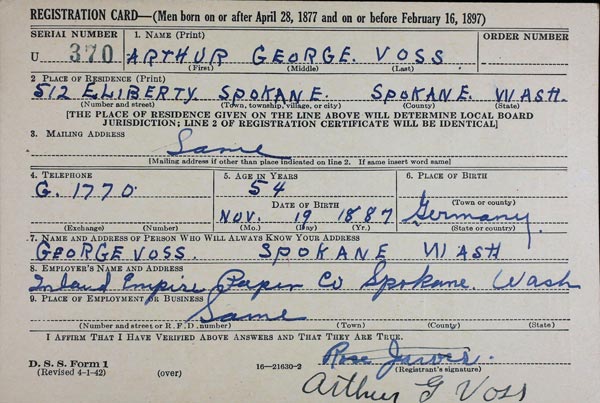 REGISTRATION CARD—(Men born on or after April 28, 1877 and on or before February 16, 1897)
SERIAL NUMBER 1. NAME (Print) ORDER NUMBER
U 370 ARTHUR GEORGE. VOSS
(First) (Middle) (Last)
2. PLACE OF RESIDENCE (Print)
512 E LIBERTY. SPOKANE. SPOKANE. WASH.
(Number and street) (Town, township, village, or city) (County) (State)
[THE PLACE OF RESIDENCE GIVEN ON THE LINE ABOVE WILL DETERMINE LOCAL BOARD
JURISDICTION; LINE 2 OF REGISTRATION CERTIFICATE WILL BE IDENTICAL]
3. MAILING ADDRESS
Same
[Mailing address if other than place indicated on line 2. If same insert word same]
4. TELEPHONE 5. AGE IN YEARS 6. PLACE OF BIRTH
G. 1770 54
DATE OF BIRTH (Town or county)
NOV. 19 1887 Germany.
(Exchange) (Number) (Mo.) (Day) (Yr.) (State or country)
7. NAME AND ADDRESS OF PERSON WHO WILL ALWAYS KNOW YOUR ADDRESS
GEORGE VOSS. SPOKANE WASH
8. EMPLOYER'S NAME AND ADDRESS
Inland Empire Paper Co Spokane. Wash
9. PLACE OF EMPLOYMENT OR BUSINESS
Same
(Number and street or R. F. D. number) (Town) (County) (State)
I AFFIRM THAT I HAVE VERIFIED ABOVE ANSWERS AND THAT THEY ARE TRUE.
Rose Jarvis.
D. S. S. Form 1
(Revised 4-1-42) (over) 16—21630-2 (Registrant's signature)
Arthur G Voss